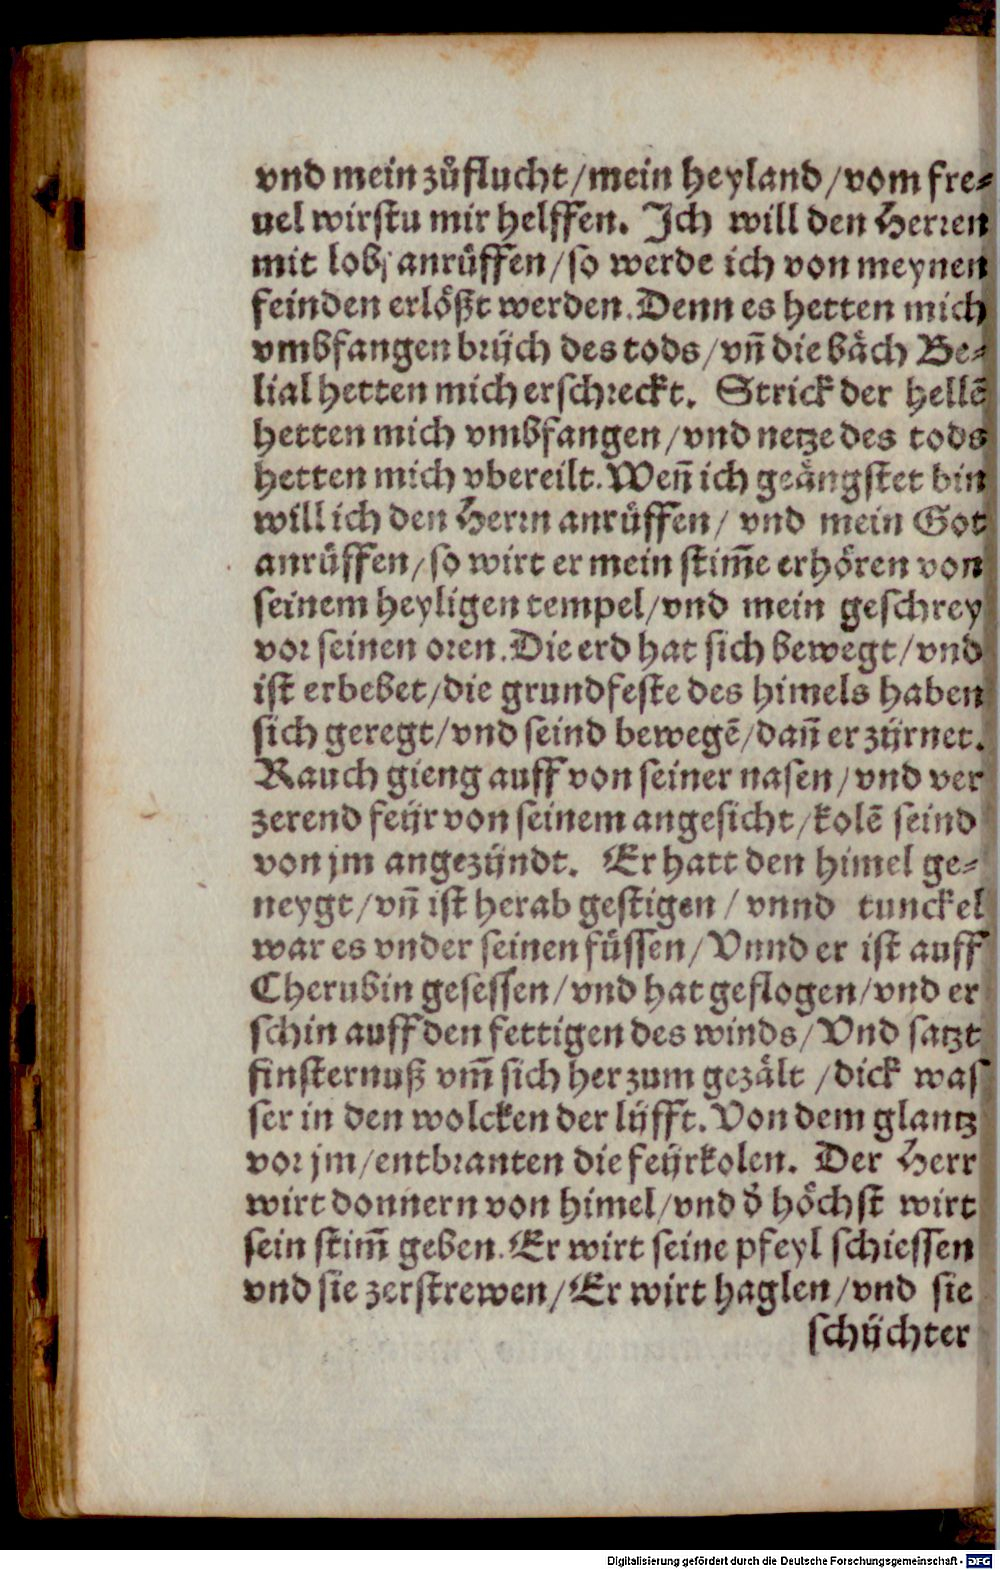 vnd mein zůflucht/mein heyland/vom fre⸗
uel wirstu mir helffen. Jch will den Herren
mit lob anrůffen/so werde ich von meynen
feinden erlößt werden. Denn es hetten mich
vmbfangen brÿch des tods/vñ die bäch Be⸗
lial hetten mich erschreckt. Strick der hellẽ
hetten mich vmbfangen/vnd netze des tods
hetten mich vbereilt. Weñ ich geängstet bin
will ich den Herrn anrůffen/ vnd mein Got
anrůffen/so wirt er mein stim̃e erhören von
seinem heyligen tempel/vnd mein geschrey
vor seinen oren. Die erd hat sich bewegt/vnd
ist erbebet/die grundfeste des himels haben
sich geregt/vnd seind bewegẽ/dañ er zÿrnet.
Rauch gieng auff von seiner nasen/vnd ver
zerend feÿr von seinem angesicht/kolẽ seind
von jm angezÿndt. Er hatt den himel ge⸗
neygt/vñ ist herab gestigen/ vnnd tunckel
war es vnder seinen füssen/Vnnd er ist auff
Cherubin gesessen/vnd hat geflogen/vnd er
schin auff den fettigen des winds/Vnd satzt
finsternuß vm̃ sich her zum gezält /dick was
ser in den wolcken der lÿfft. Von dem glantz
vor jm/entbranten die feÿrkolen. Der Herr
wirt donnern von himel/vnd d̓ höchst wirt
sein stim̃ geben. Er wirt seine pfeyl schiessen
vnd sie zerstrewen/Er wirt haglen/vnd sie
schÿchter
Digitalisierung gefördert durch die Deutsche Forschungsgemeinschaft - DFG